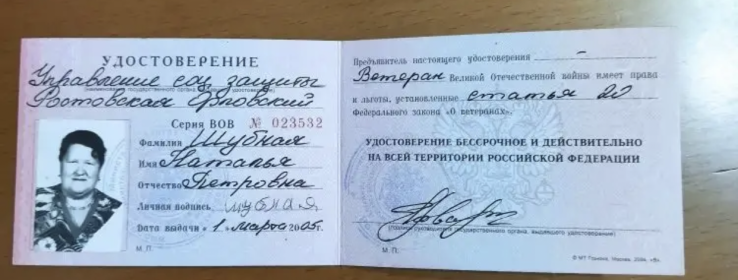 УДОСТОВЕРЕНИЕ
Управление соц защиты
(наименование государственного органа, выдавшего удостоверение)
Ростовская Орловский
Серия ВОВ № 023532
Фамилия Шубная
Имя Наталья
Отчество Петровна
Личная подпись Шубная
Дата выдачи «1» марта 2005г.
М. П.
Предъявитель настоящего удостоверения –
Ветеран Великой Отечественной войны имеет права
и льготы, установленные статья 20
Федерального закона «О ветеранах».
УДОСТОВЕРЕНИЕ БЕССРОЧНОЕ И ДЕЙСТВИТЕЛЬНО
НА ВСЕЙ ТЕРРИТОРИИ РОССИЙСКОЙ ФЕДЕРАЦИИ
(подпись руководителя государственного органа, выдавшего удостоверение)
М. П.
© МТ Гознака, Москва, 2004, «В».